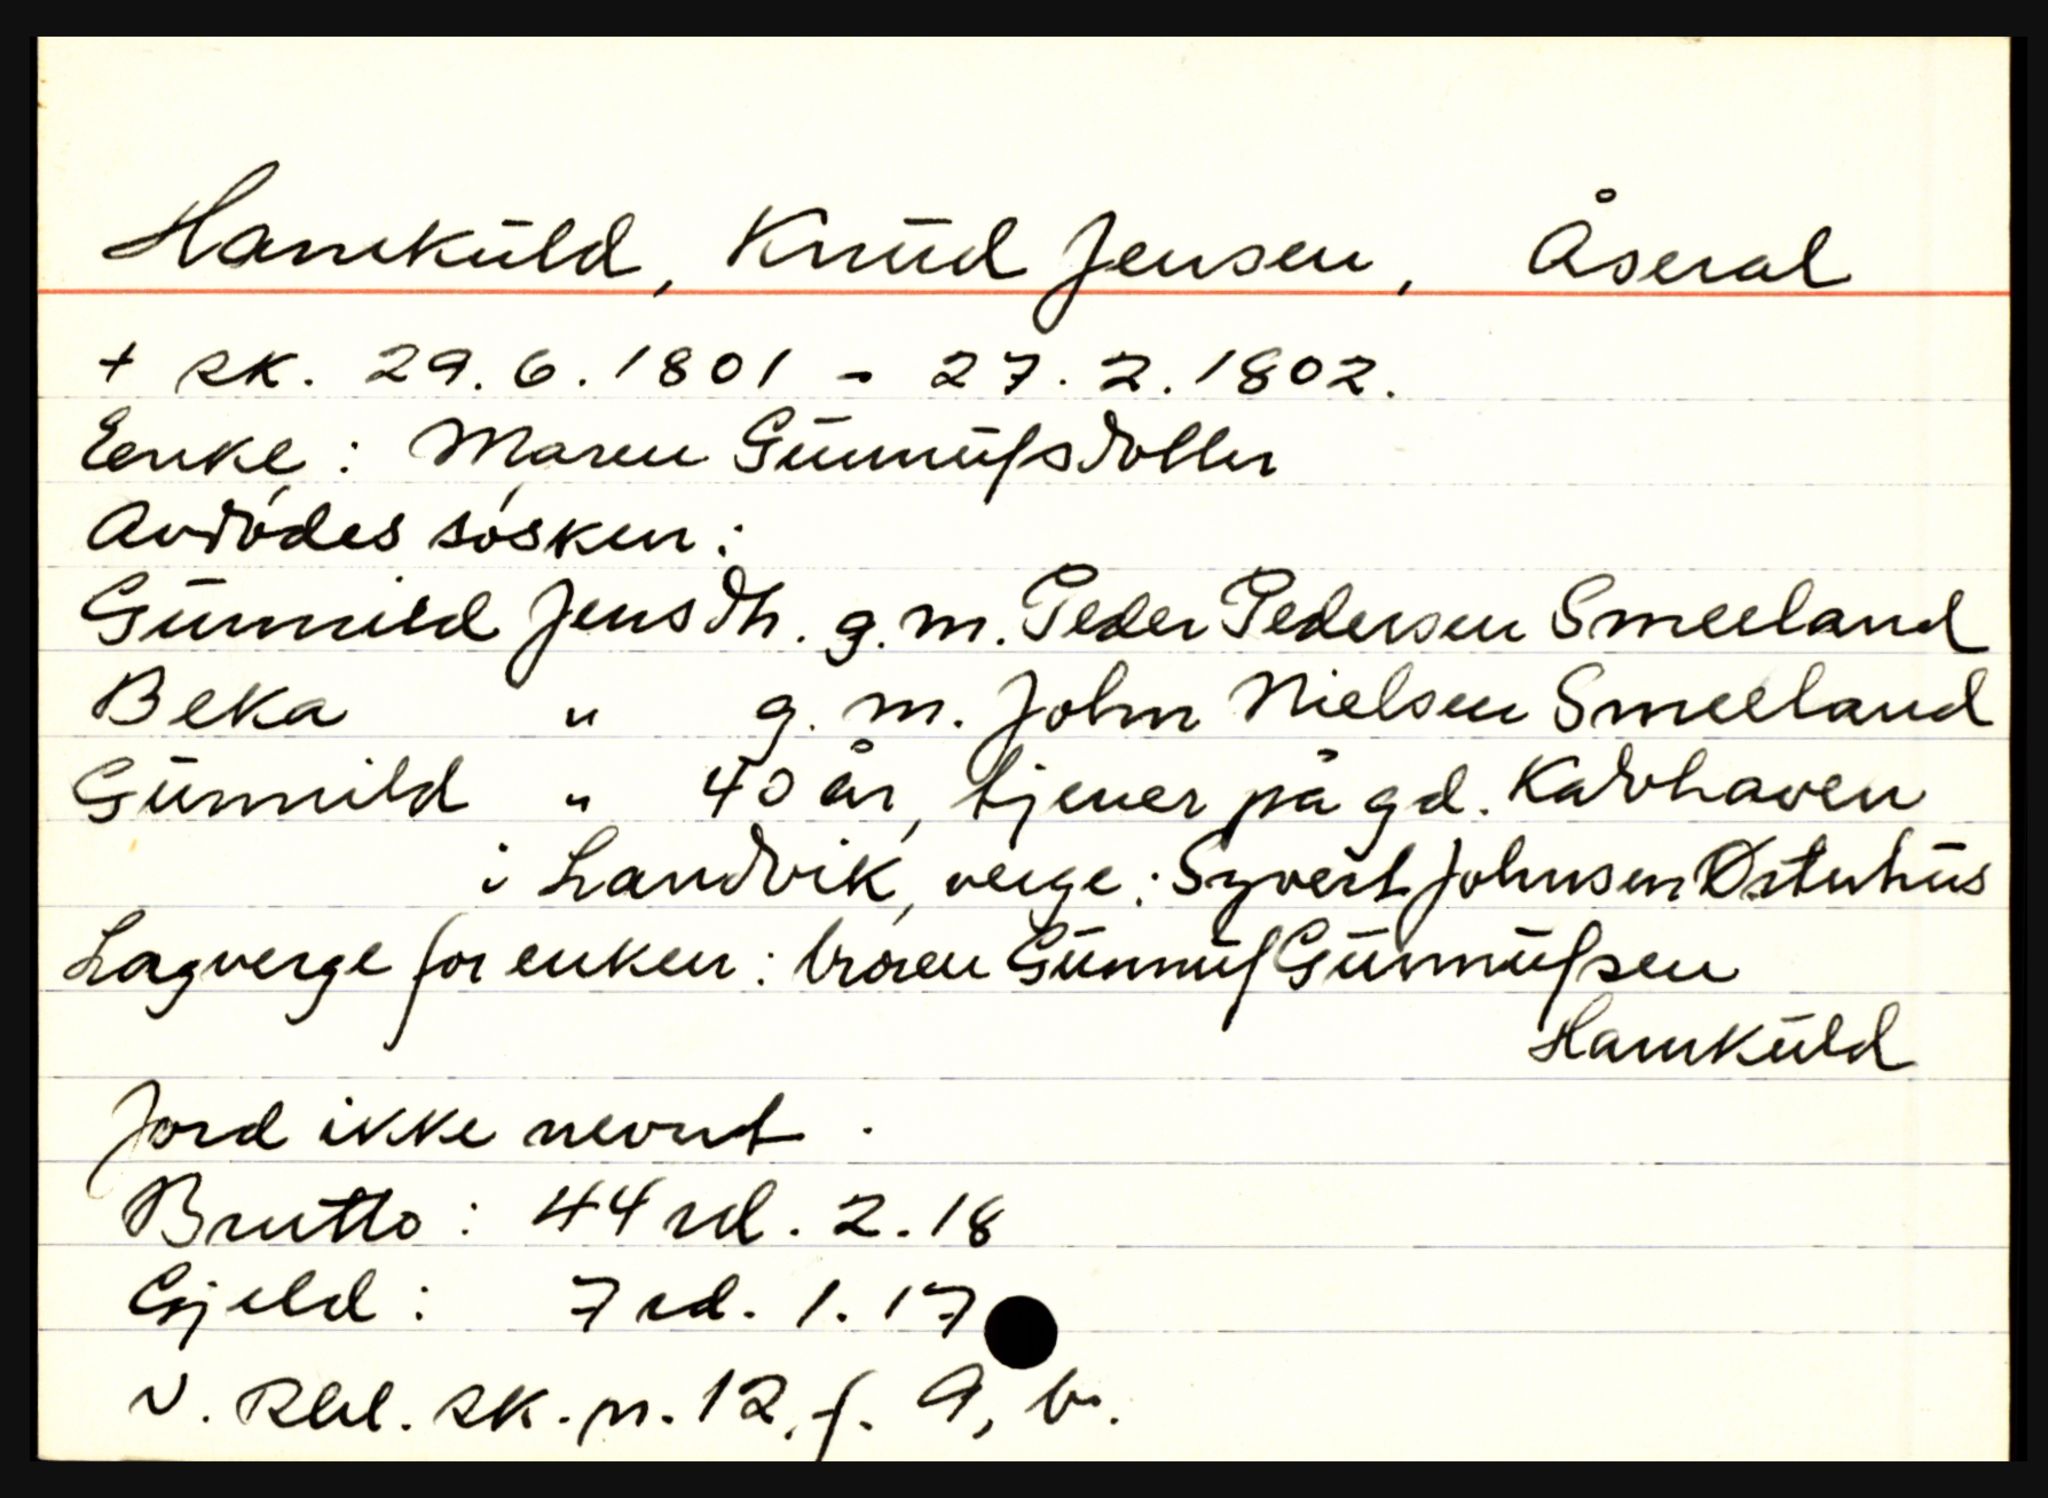 Hamkuld, Knud Jensen, Åseral
+ sk. 29.6.1801 - 27.2.1802.
Enke: Maren Gunnufsdotter
Avdødes søsken:
Gunnild Jensdtr. g.m. Peder Pedersen Smeeland
Beka " g.m. John Nielsen Smeeland
Gunnild " 40 år, tjener på gd. Kadvhaven
i Landvik, verge: Syvert Johnsen Østerhus
Lagverge for enken: broren Gunnuf Gunnufsen
Hamkuld
Jord ikke nevnt.
Brutto: 44 rd. 2.18
Gjeld: 7 rd. 1.17
N. Rbd. sk. pr. 12, f. 9, b.